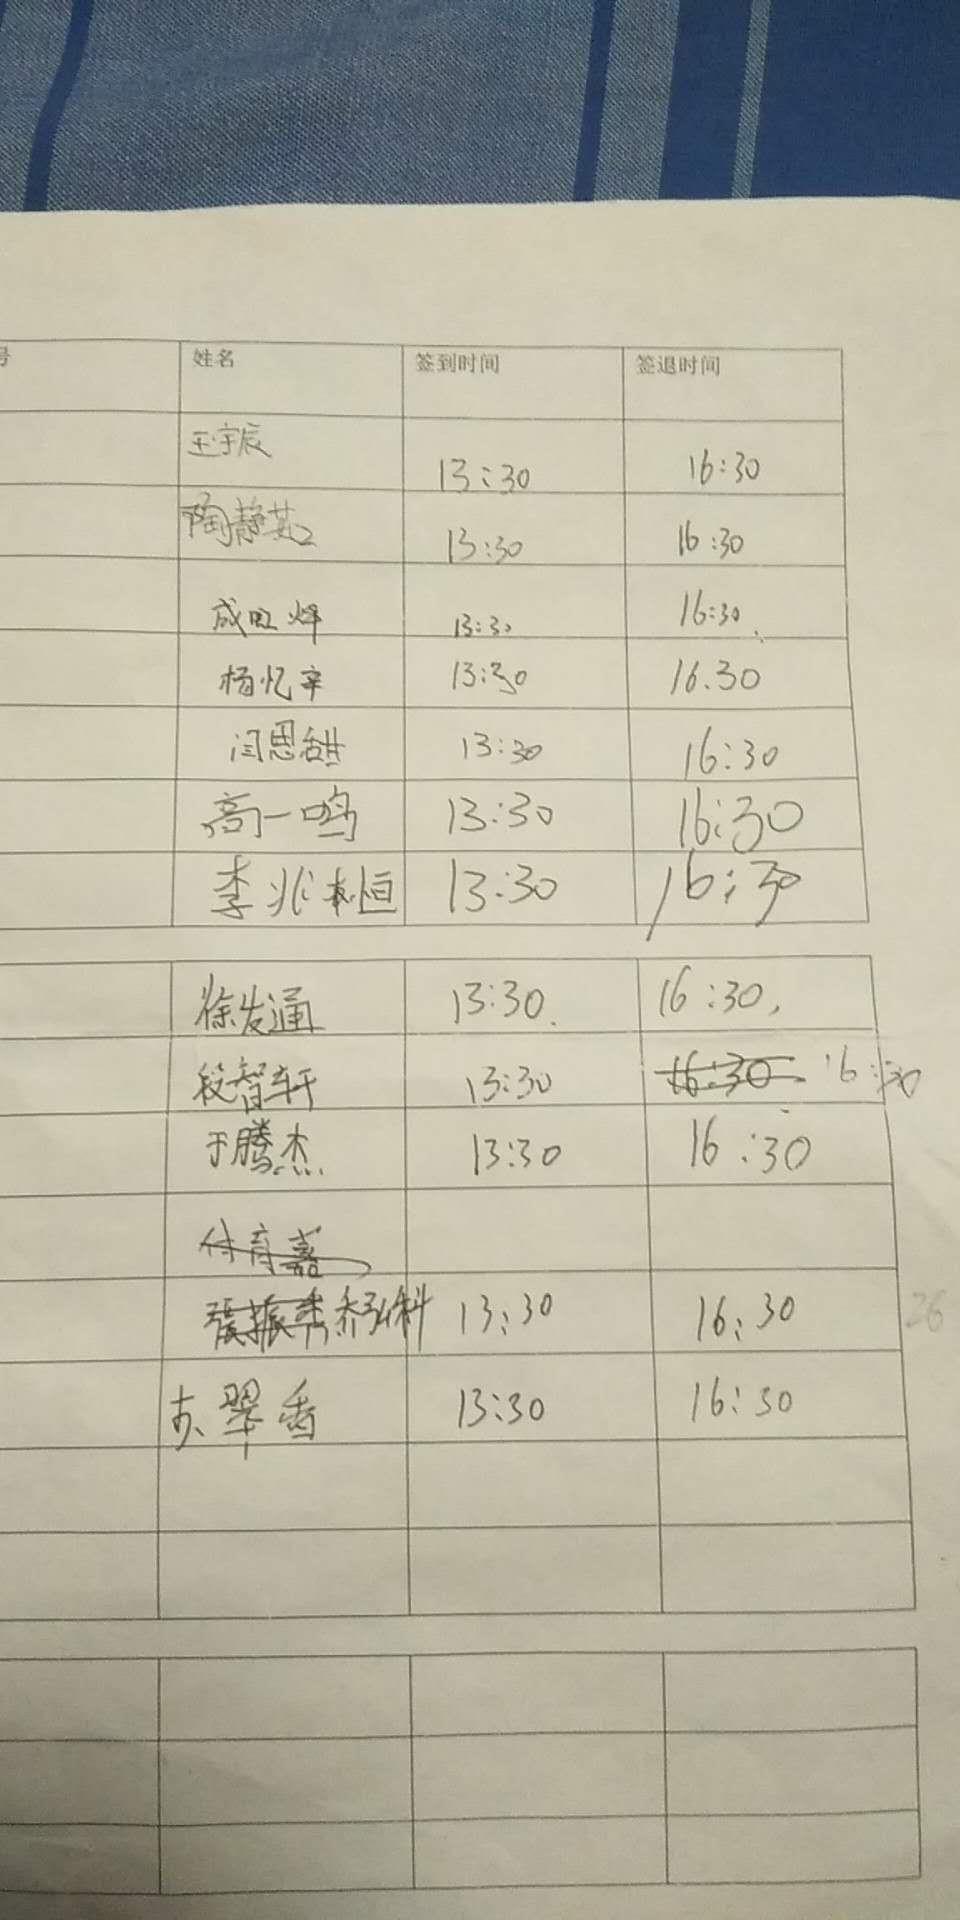 号 姓名 签到时间 签退时间
王宇辰 13:30 16:30
陶静其 13:30 16:30
成旺烨 13:30 16:30
杨忆辛 13:30 16.30
闫思甜 13:30 16:30
高一鸣 13:30 16:30
李兆恒 13:30 16:30
徐发通 13:30. 16:30,
段智轩 13:30 16:30 16:30
于腾杰 13:30 16:30
付育嘉
张振秀 乔弘科 13:30 16:30 26
翠香 13:30 16:30